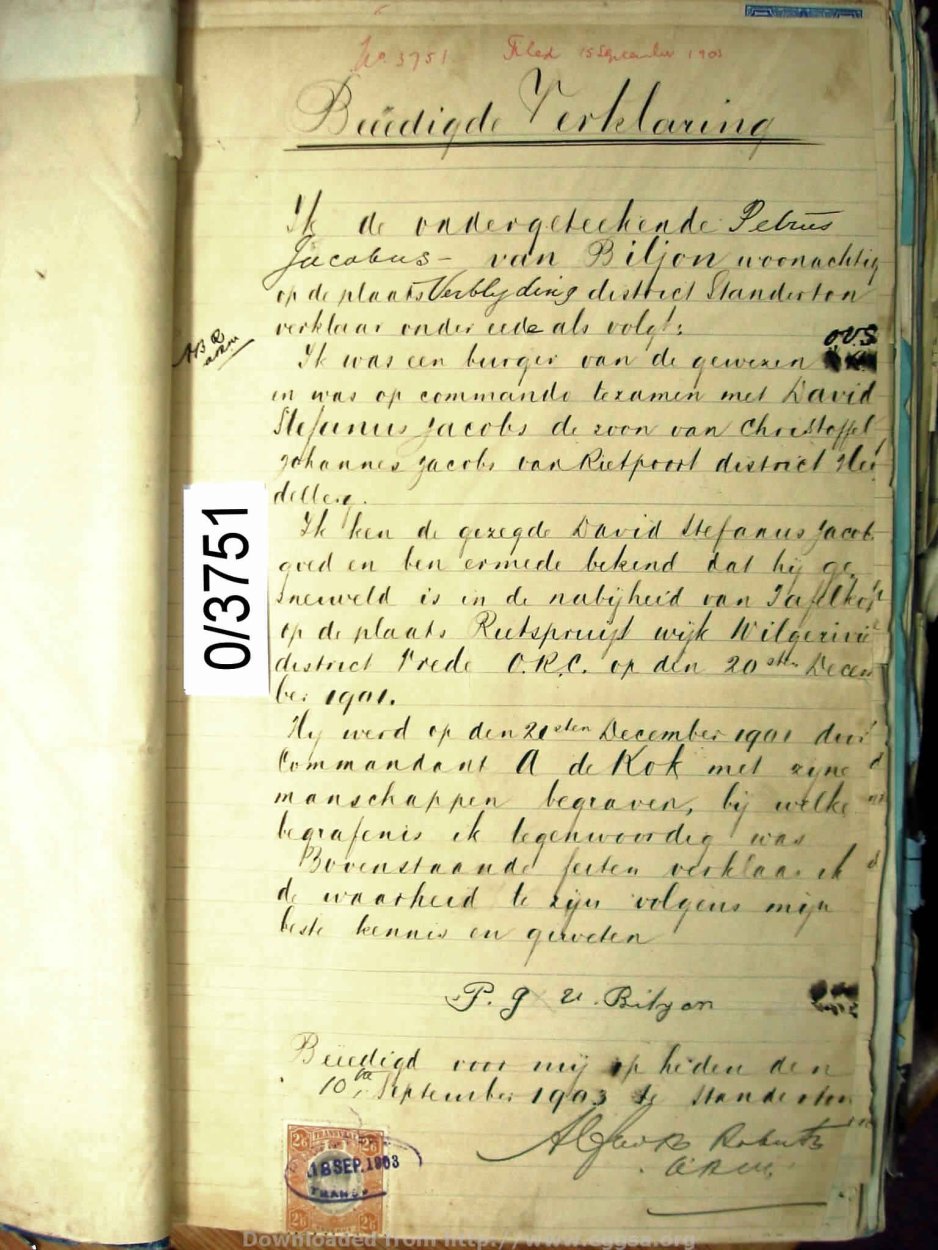 No. 3751 Filed 15 September 1903
Beëedigde Verklaring
Ik de ondergeteekende Petrus
Jacobus - van Biljon woonachtig
op de plaats Verblyding district Standerton
verklaar onder eede als volgt:
O.V.S
Ik was een burger van de gewezen
en was op commando tezamen met David
Stefanus Jacobs de zoon van Christoffel
Johannes Jacobs van Rietpoort district Hei
delberg.
Ik ken de gezegde David Stefanus Jacobs
goed en ben ermede bekend dat hij ge
sneuveld is in de nabijheid van Tafelkop
op de plaats Rietspruijt wijk Wilgerivier
district Vrede O.R.C. op den 20sten Decem
ber 1901.
Hy werd op den 21sten December 1901 door
Commandant A de Kok met zyne
manschappen begraven, bij welke
begrafenis ik tegenwoordig was
Bovenstaande feiten verklaar ik
de waarheid te zijn volgens mijn
beste kennis en geweten
P. J v. Bilyon
Beëedigd voor mij op heden den
10de September 1903 te Standerton
Roberts
A.R.M.
0/3751
TRANSVAAL
2/6 2/6
18 SEP. 1903
TRANSV
2/6 2/6
Downloaded from http://www.eggsa.org